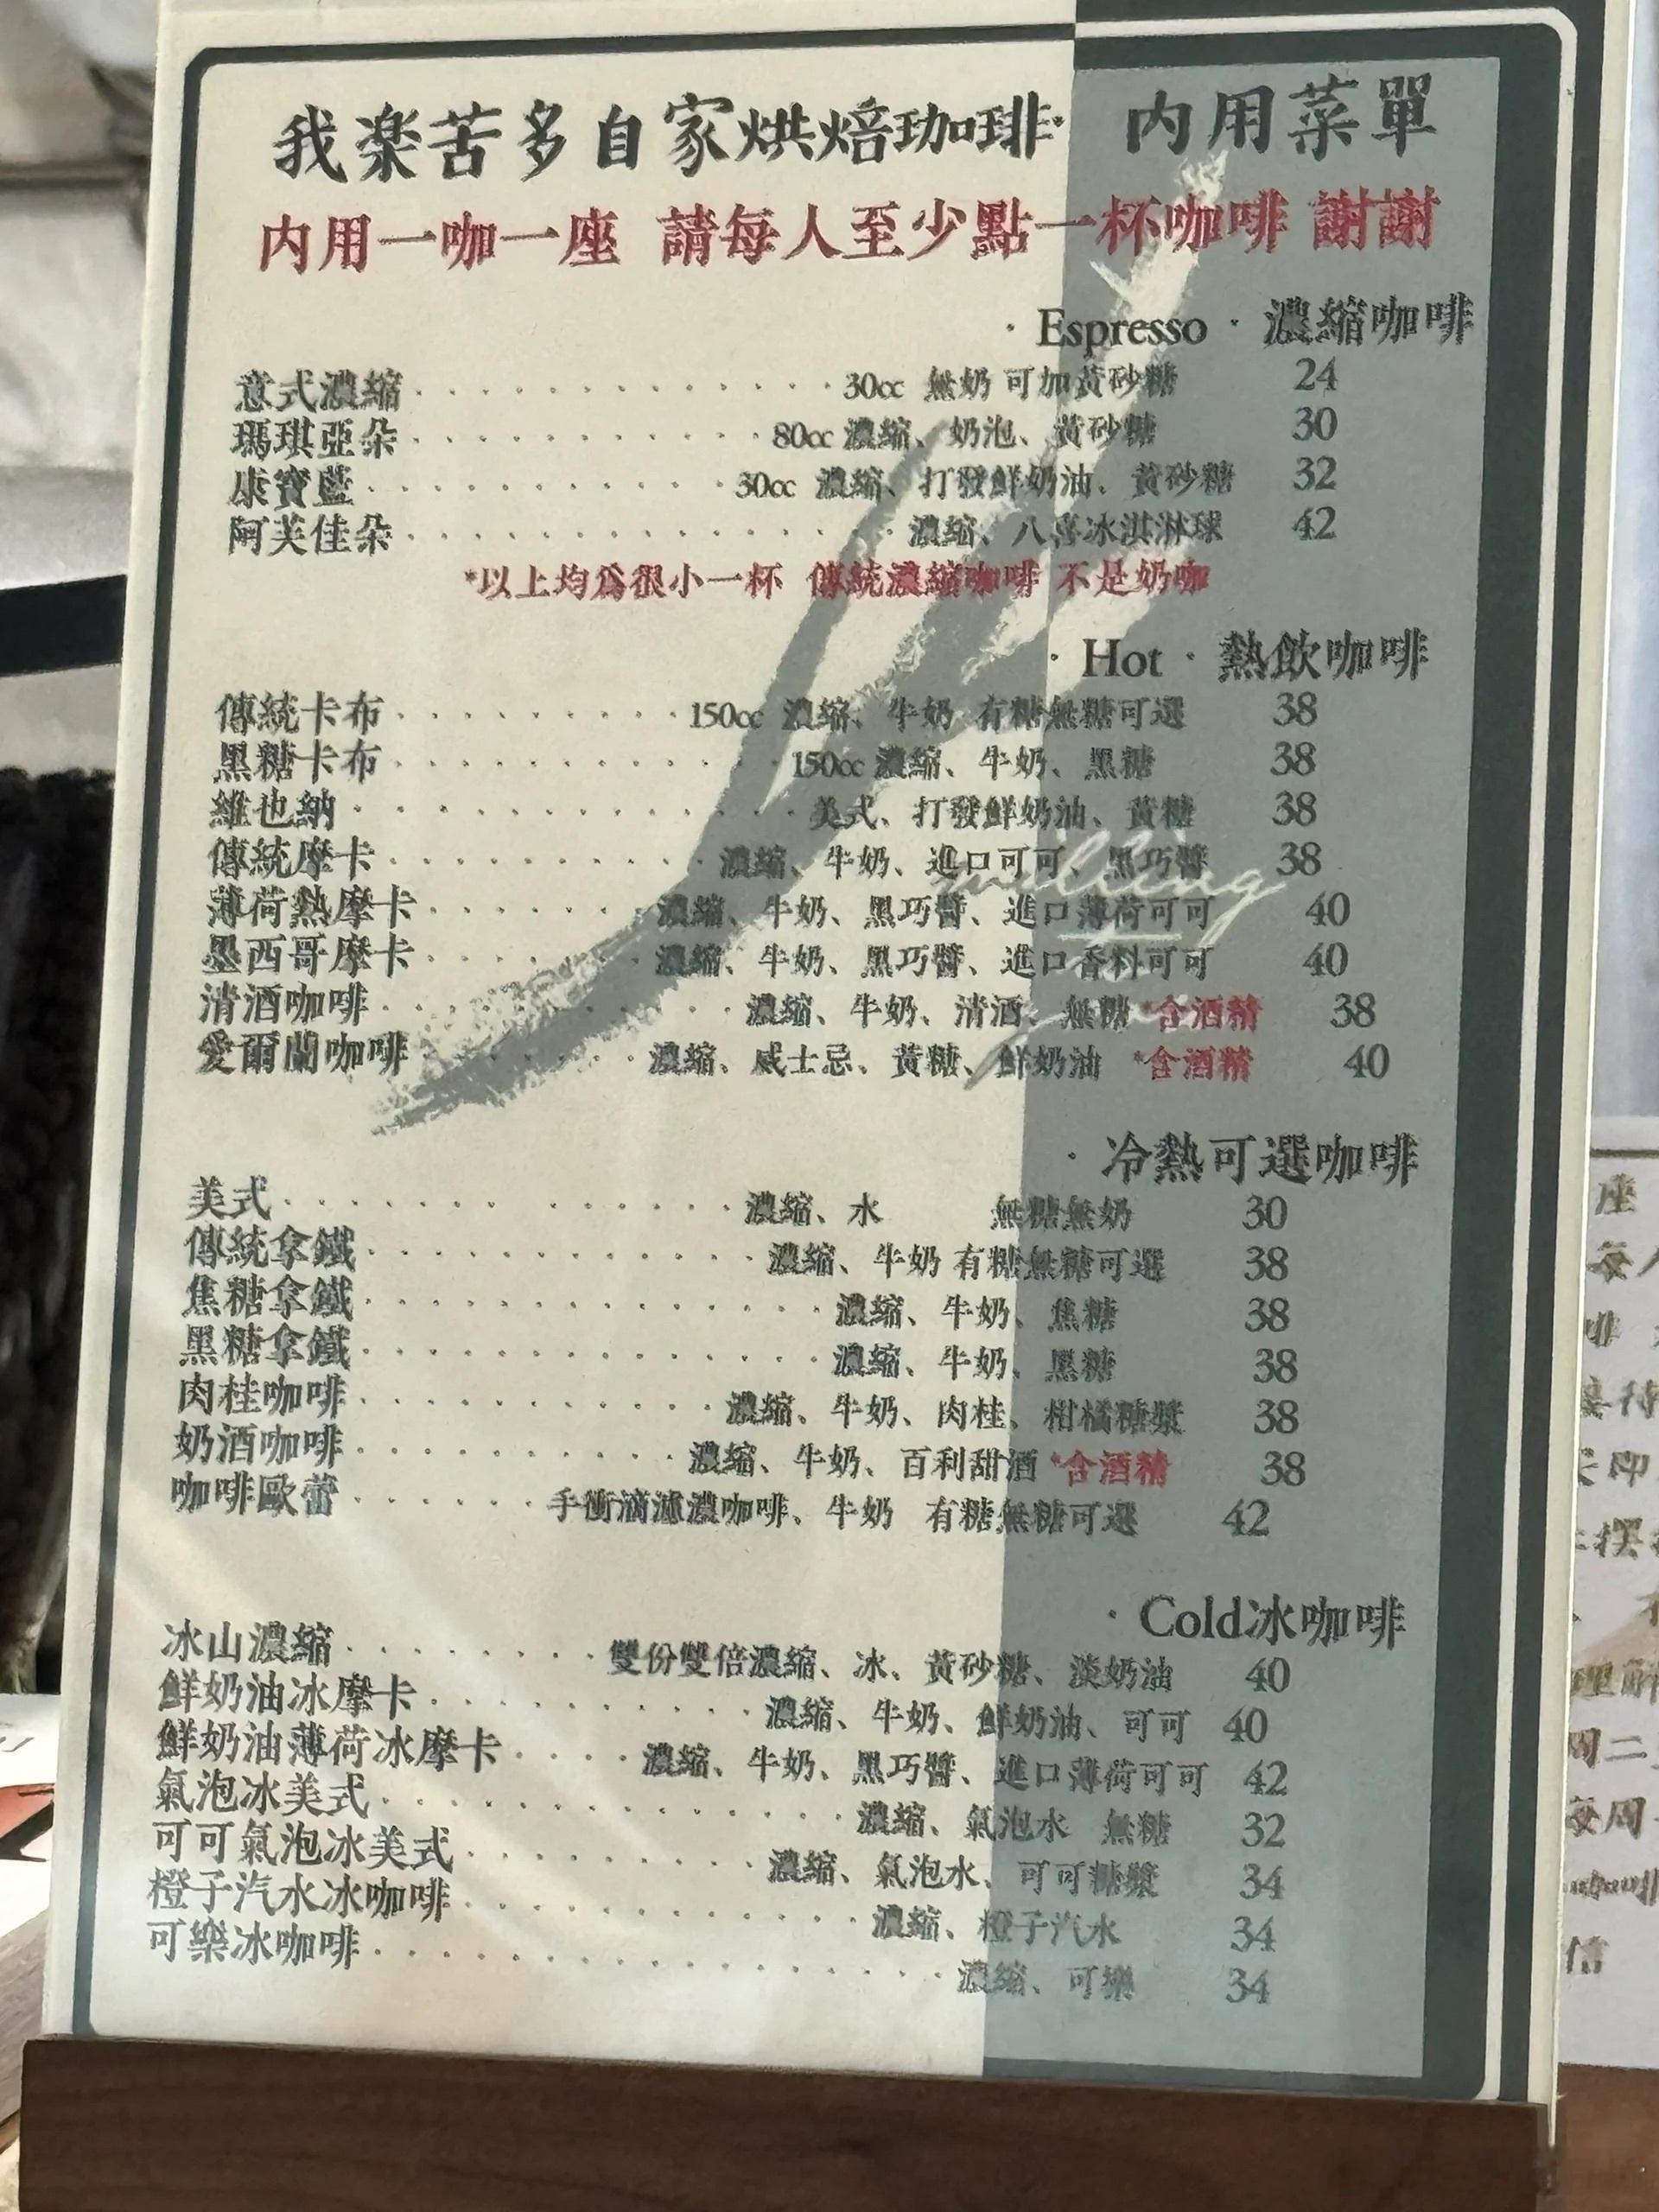 我楽苦多自家烘焙珈琲· 内用菜單
内用一咖一座 請每人至少點一杯咖啡 謝謝
· Espresso · 濃縮咖啡
意式濃縮 30cc 無奶 可加黃砂糖 24
瑪琪亞朵 80cc 濃縮、奶泡、黃砂糖 30
康寶藍 30cc 濃縮、打發鮮奶油、黃砂糖 32
阿芙佳朵 濃縮、八喜冰淇淋球 42
*以上均為很小一杯 傳統濃縮咖啡 不是奶咖
· Hot · 熱飲咖啡
傳統卡布 150cc 濃縮、牛奶 有糖無糖可選 38
黑糖卡布 150cc 濃縮、牛奶、黑糖 38
維也納 美式、打發鮮奶油、黃糖 38
傳統摩卡 濃縮、牛奶、進口可可、黑巧醬 38
薄荷熱摩卡 濃縮、牛奶、黑巧醬、進口薄荷可可 40
墨西哥摩卡 濃縮、牛奶、黑巧醬、進口香料可可 40
清酒咖啡 濃縮、牛奶、清酒、無糖 *含酒精 38
愛爾蘭咖啡 濃縮、威士忌、黃糖、鮮奶油 *含酒精 40
· 冷熱可選咖啡
美式 濃縮、水 無糖無奶 30
傳統拿鐵 濃縮、牛奶 有糖無糖可選 38
焦糖拿鐵 濃縮、牛奶、焦糖 38
黑糖拿鐵 濃縮、牛奶、黑糖 38
肉桂咖啡 濃縮、牛奶、肉桂、柑橘糖漿 38
奶酒咖啡 濃縮、牛奶、百利甜酒 *含酒精 38
咖啡歐蕾 手衝滴濾濃咖啡、牛奶 有糖無糖可選 42
· Cold冰咖啡
冰山濃縮 雙份雙倍濃縮、冰、黃砂糖、淡奶油 40
鮮奶油冰摩卡 濃縮、牛奶、鮮奶油、可可 40
鮮奶油薄荷冰摩卡 濃縮、牛奶、黑巧醬、進口薄荷可可 42
氣泡冰美式 濃縮、氣泡水 無糖 32
可可氣泡冰美式 濃縮、氣泡水、可可糖漿 34
橙子汽水冰咖啡 濃縮、橙子汽水 34
可樂冰咖啡 濃縮、可樂 34